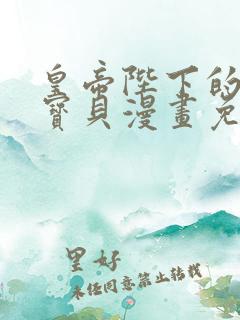 皇帝陛下的
寶貝漫畫免
里好
未经同意禁止转载